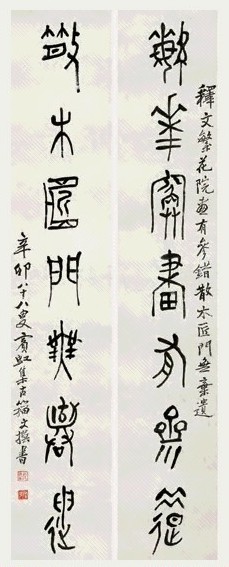 釋文繁花院畫有參錯散木匠門無棄遺
繁華院畫有參錯
散木匠門無棄遺
辛卯八十八叟賓虹集古籀文撰書